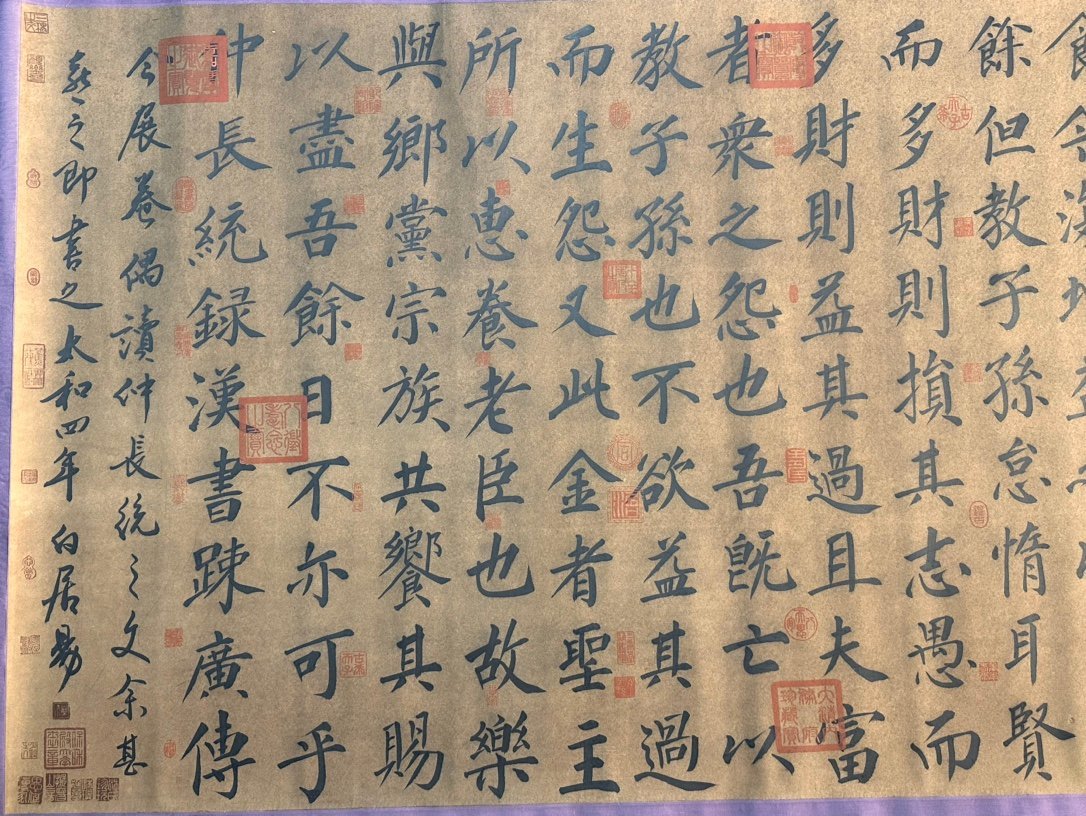 餘但教子孫怠惰耳賢
而多財則損其志愚而
多財則益其過且夫富
者衆之怨也吾既亡以
教子孫也不欲益其過
而生怨又此金者聖主
所以惠養老臣也故樂
與鄉黨宗族共饗其賜
以盡吾餘日不亦可乎
仲長統録漢書踈廣傳
今展卷偶讀仲長統之文余甚
喜之即書之太和四年白居易